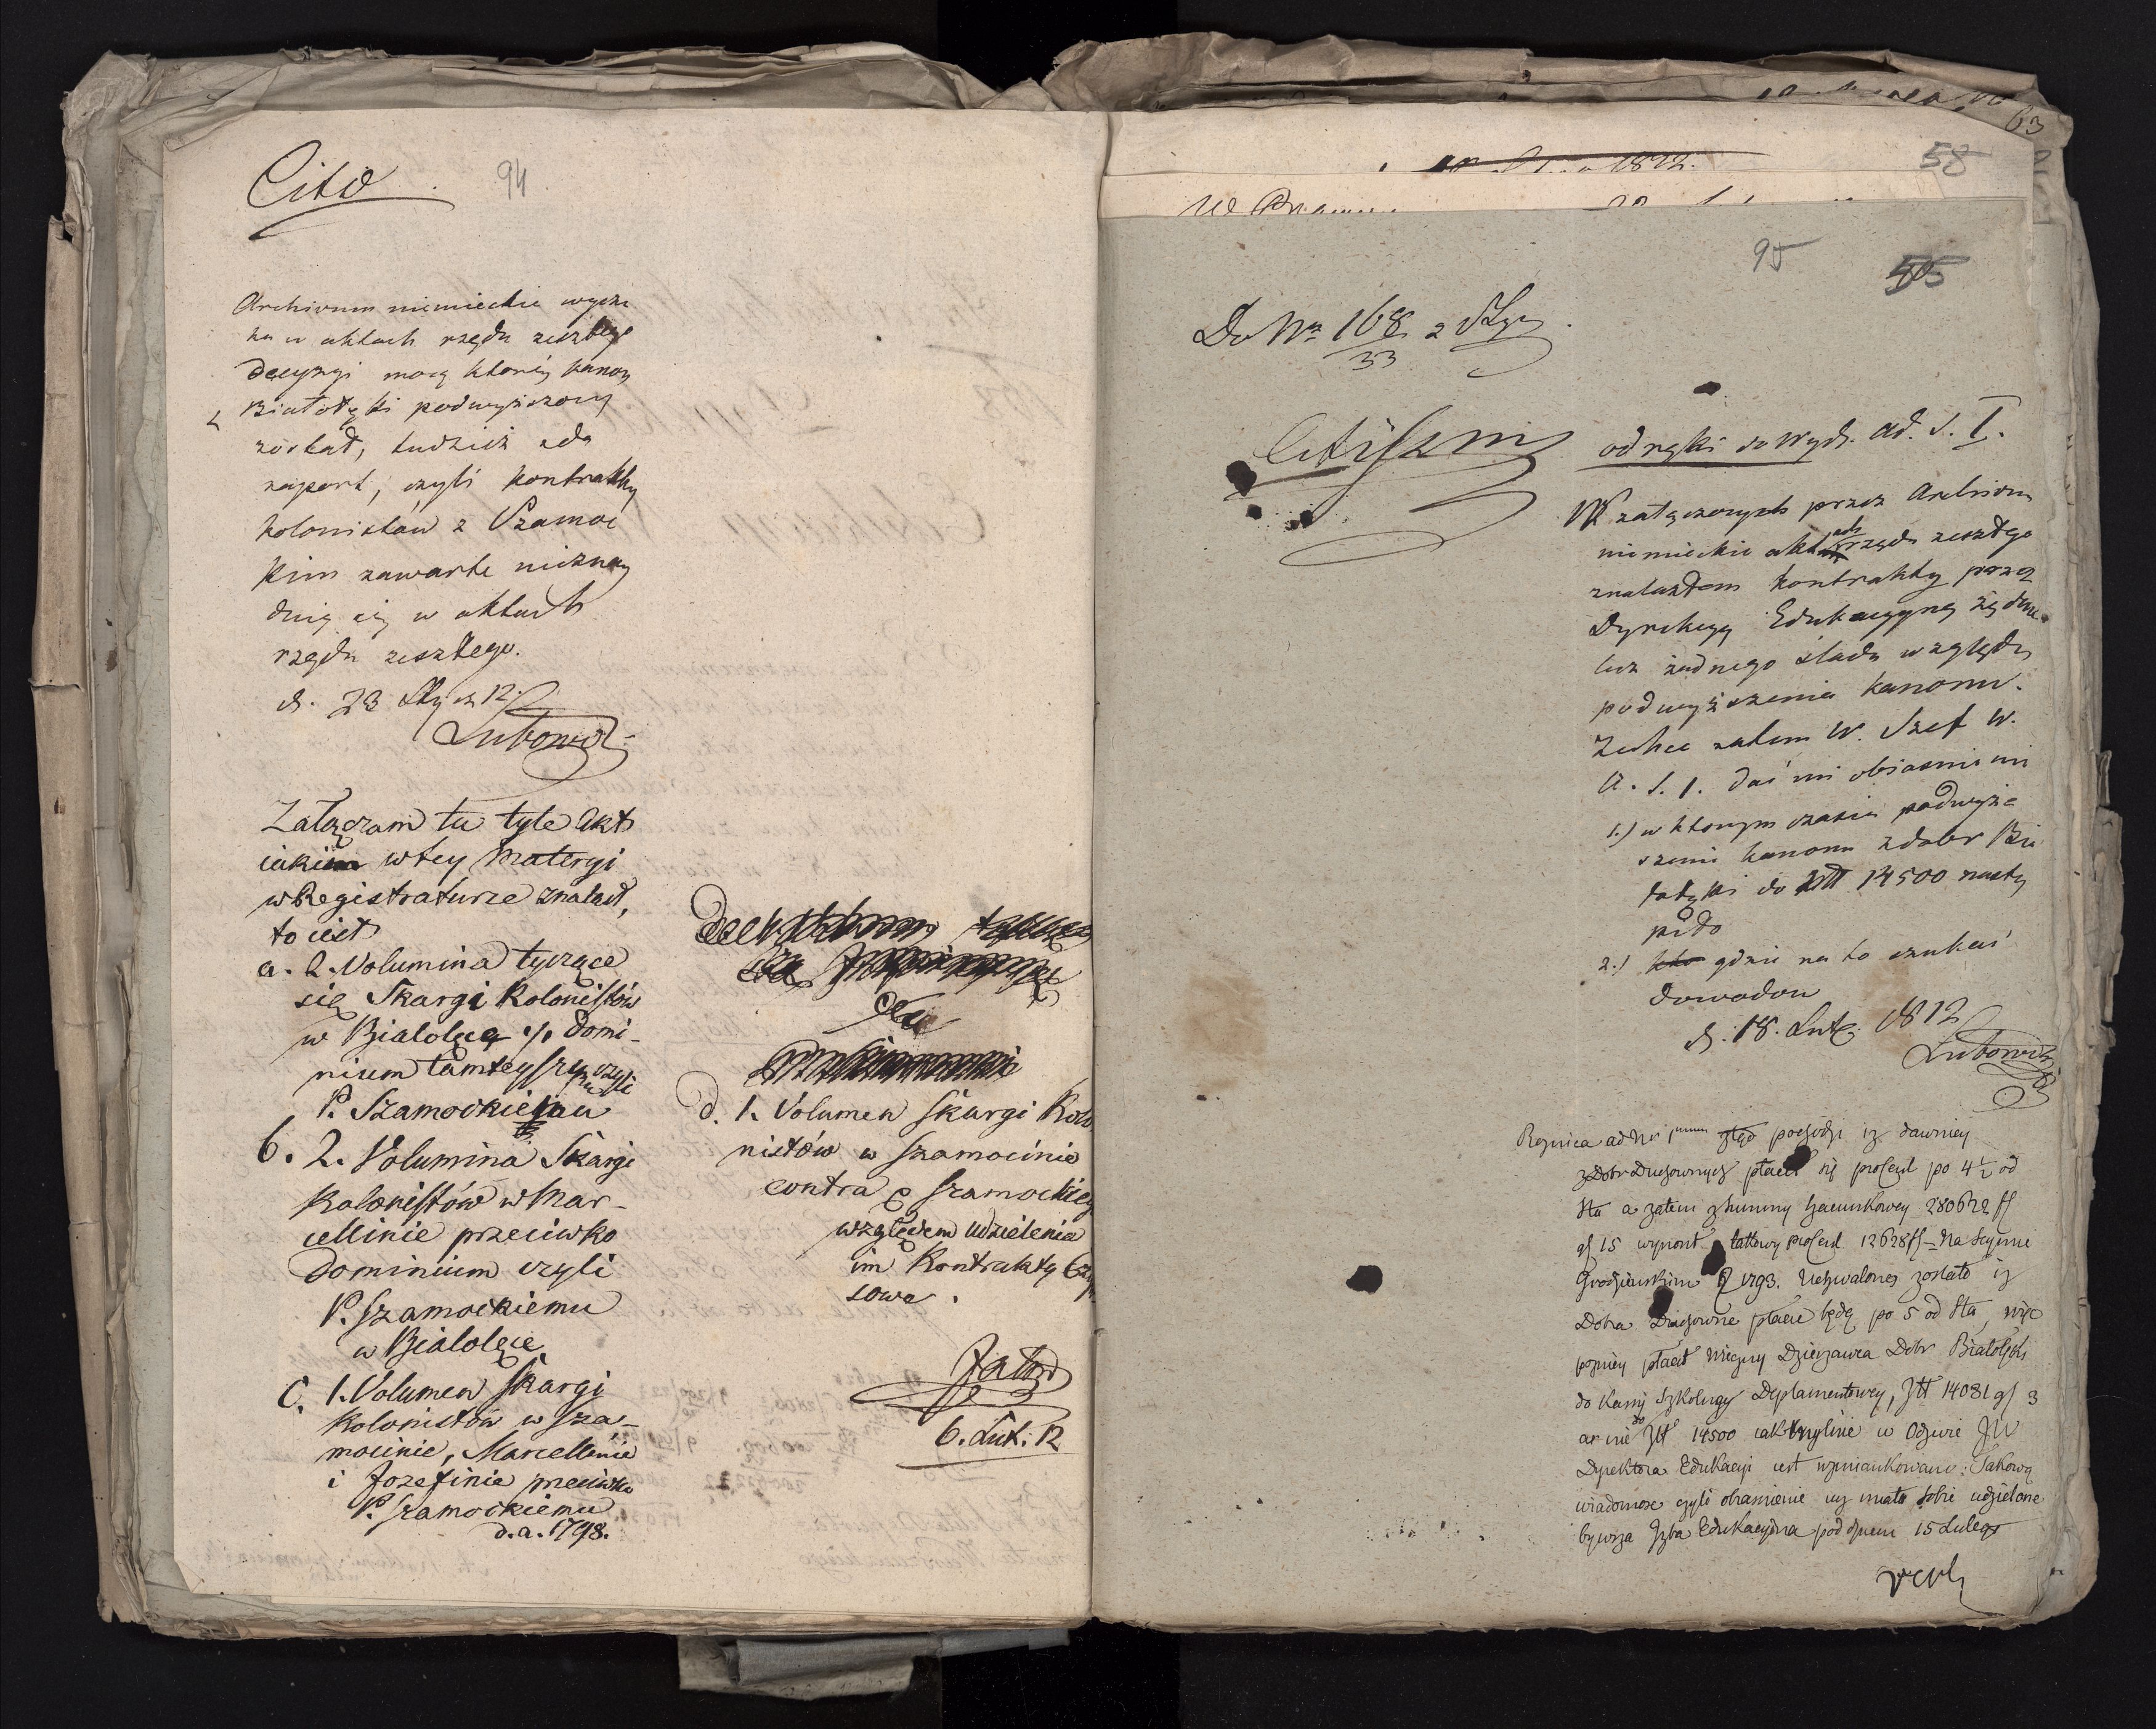 Cito
94
Archivum niemieckie wyszu
ka w aktach rządu zeszłego
decyzyi mocą którey kanon
Białołęki podwyższony
został, tudzież zda
raport, czyli kontrakty
kolonistów z Szamoc
kim zawarte nieznay
duią się w aktach
rządu zeszłego.
d. 23 Sty. 12.
Lubowidz
Załączam tu tyle Akt
iakiem w tey Materyi
w Registraturze znalazł,
to iest
a. 2. Volumina tyczące
się Skargi Kolonistów
w Białolęce %. Domi-
nium tamteyszemu czyli
P. Szamockiemu
b. 2. Volumina Skargi
Kolonistów w Mar-
cellinie przeciwko
Dominium czyli
P. Szamockiemu
w Białolęce
C. 1. Volumen Skargi
Kolonistów w Sza-
mocinie, Marcellinie
i Jozefinie przeciwko
P. Szamockiemu
d. a. 1798.
d. 1. Volumen Skargi Kolo
nistów w Szamocinie
contra P Szamockiey
względem udzielenia
im Kontrakty Czyn
sowe.
6. Lut. 12
63
58
1812.
95
Do Nr 168 z Sty.
33
Citissime
od ręki do Wydz. Ad. S. I.
W załączonych przez Archivum
niemieckie aktach rządu zeszłego
znalazłem kontrakty przez
Dyrekcyą Edukacyyną żądane
lecz żadnego śladu względem
podwyższenia kanonu.
Zechce zatem W. Szef W.
A. S. I. dać mi obiaśnieni
1.) w którym czasie podwyż=
szenie kanonu z dobr Bia
łołęki do złł 14500 nastą
piło
2.) kto gdzie na to szukać
dowodow
d. 18. Lut. 1812
Lubowidz
Roznica ad Nr 1mum ztąd pochodzi iż dawniey
z Dobr Duchownych płacił się procent po 4½ od
sta a zatem z summy szacunkowey 280622 fl
gl 15 wynosił takowy procent 12628 fl – Na Seymie
Grodzieńskim R 1793. Uchwalono zostało iż
Dobra Duchowne płacić będą po 5 od sta, więc
pozniey płacił Wieczny Dzierżawca Dobr Białołęki
do Kassy Szkolney Departamentowey, złł 14031 gl 3
a nie do złł 14500 iak mylnie w Odezwie JW
Dyrektora Edukacyi iest wzmiankowano. Takową
wiadomość czyli obiaśnienie iuż miała sobie udzielone
bywsza Izba Edukacyina pod dniem 15 Lutego
vert